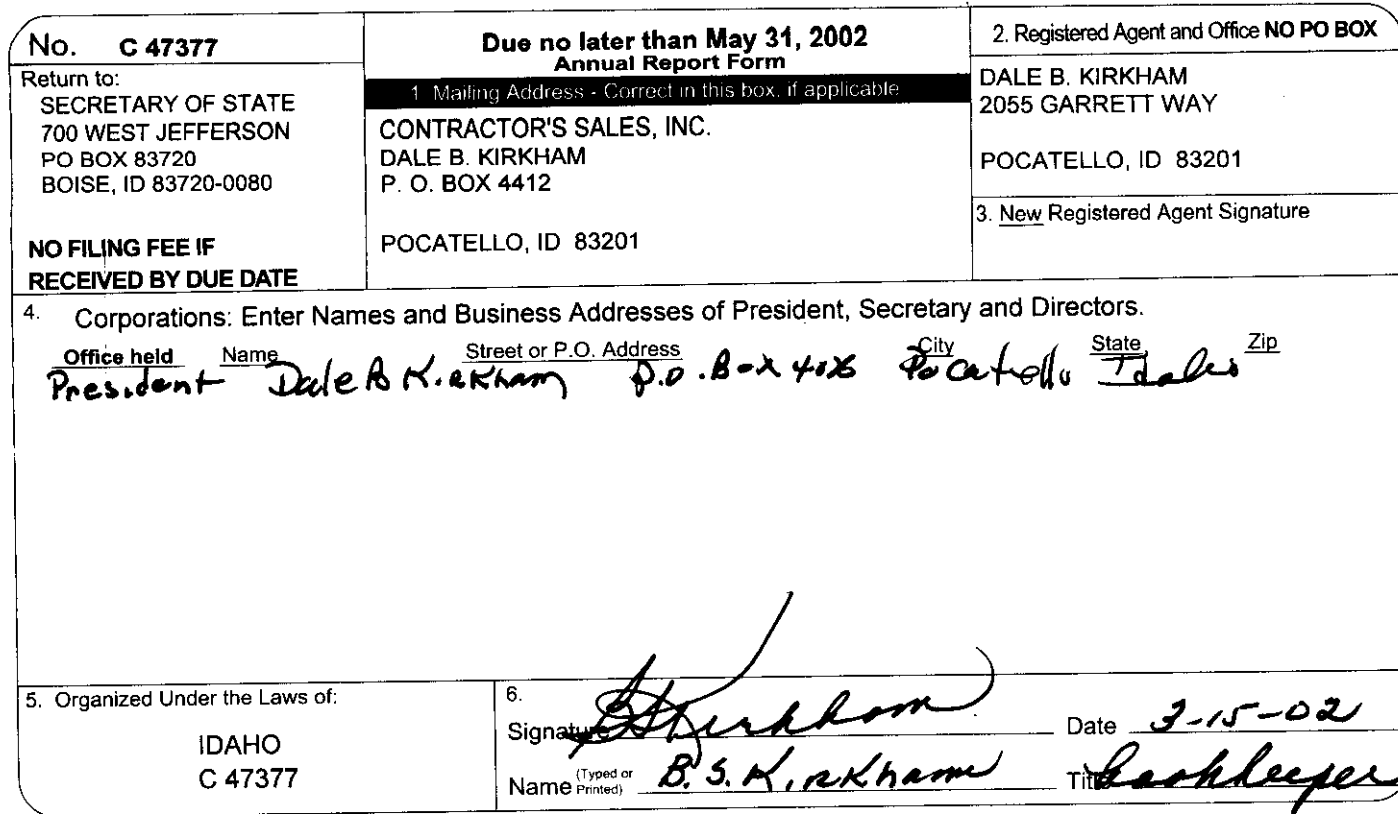 No. C 47377
Return to:
SECRETARY OF STATE
700 WEST JEFFERSON
PO BOX 83720
BOISE, ID 83720-0080
NO FILING FEE IF
RECEIVED BY DUE DATE
Due no later than May 31, 2002
Annual Report Form
1. Mailing Address - Correct in this box, if applicable
CONTRACTOR'S SALES, INC.
DALE B. KIRKHAM
P. O. BOX 4412
POCATELLO, ID 83201
2. Registered Agent and Office NO PO BOX
DALE B. KIRKHAM
2055 GARRETT WAY
POCATELLO, ID 83201
3. New Registered Agent Signature
4. Corporations: Enter Names and Business Addresses of President, Secretary and Directors.
Office held Name Street or P.O. Address City State Zip
President Dale B Kirkham P.O. Box Pocatello Idaho
5. Organized Under the Laws of:
IDAHO
C 47377
6.
Signature Kirkham Date 3-15-02
Name (Typed or Printed) B. S. Kirkham Title Bookkeeper